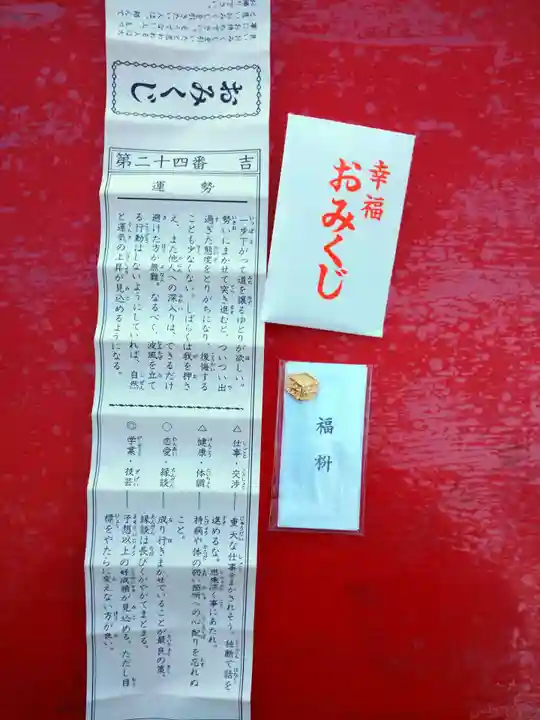 おみくじ
第二十四番 吉
運勢
一歩下がって道を譲るゆとりが欲しい。
勢いにまかせて突き進むと、ついつい出
過ぎた態度をとりがちになり、後悔する
ことも少なくない。しばらくは我を押さ
え、また他人への深入りは、できるだけ
避けた方が無難。なるべく、波風を立て
る行動はしないようにしていれば、自然
と運気の上昇が見込めるようになる。
△仕事・交渉 重大な仕事をまかされそう。独断で話を
進めるな。思慮深く事にあたれ。
△健康・体調 持病や体の弱い箇所への心配りを忘れぬ
こと。
○恋愛・縁談 成り行きまかせていることが最良の策。
縁談は長びくがやがてまとまる。
◎学業・技芸 予想以上の好成績が見込める。ただし目
標をやたらに変えない方が良い。
幸福
おみくじ
福枡